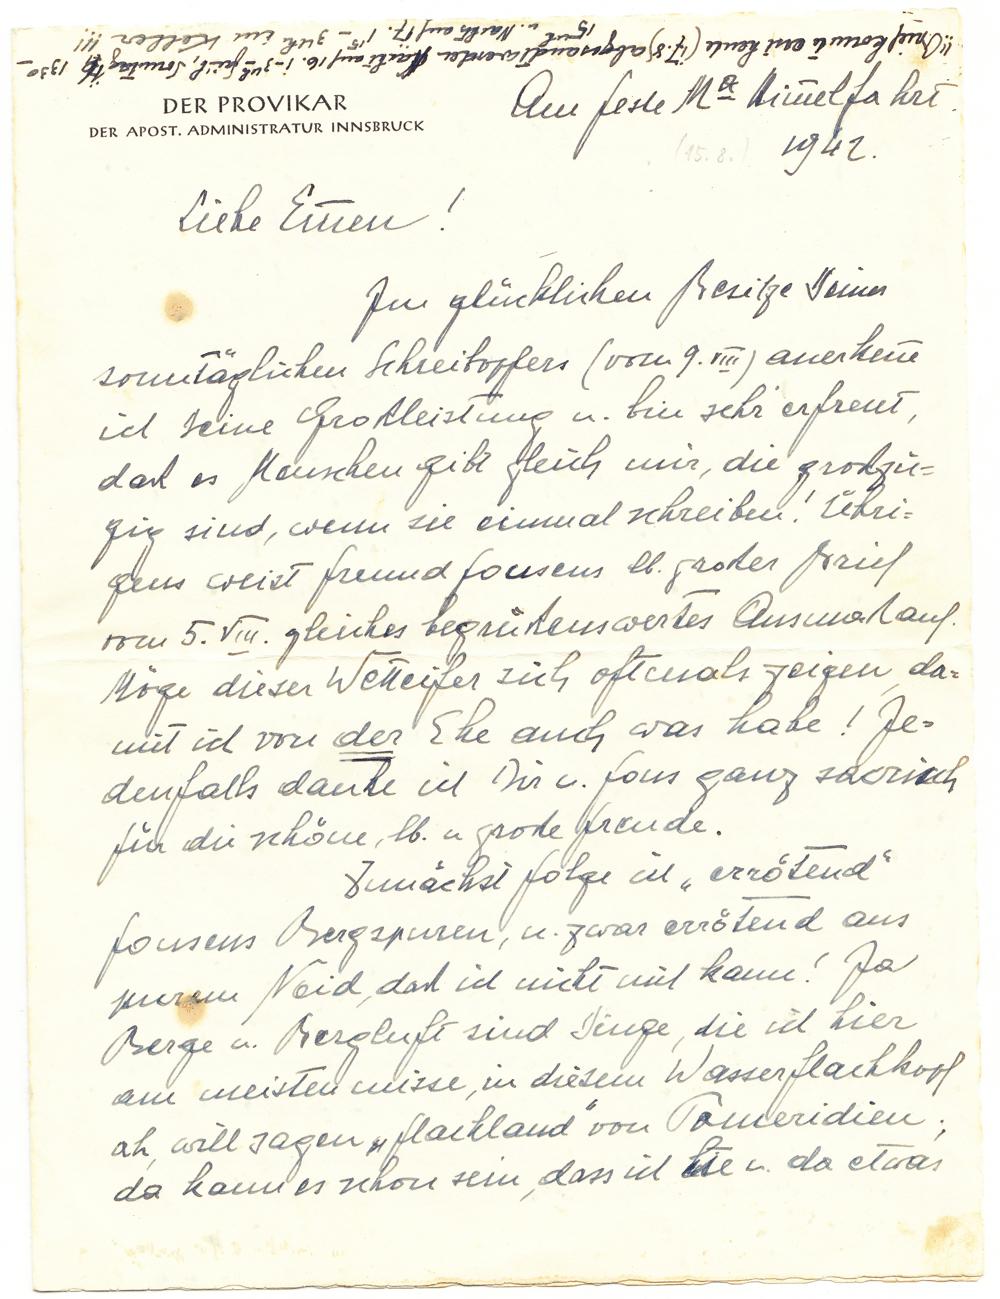 !! Brief konnte erst heute (17.8) abgesandt werden Nacht auf 16. 1-3 Uhr früh, Sonntag 13 30 -
15 Uhr u. Nacht auf 17. 1 15 - 3 Uhr im Keller !!!
DER PROVIKAR
DER APOST. ADMINISTRATUR INNSBRUCK
Am Feste Mä Himelfahrt
(15.8.) 1942.
Liebe Emen!
Im glücklichen Besitze Deines
sonntäglichen Schreibopfers (vom 9. VIII) anerkene
ich Deine Großleistung u. bin sehr erfreut,
daß es Menschen gibt gleich mir, die großzü=
gig sind, wenn sie einmal schreiben! Übri=
gens weist Freund Fonsens lb. großer Brief
vom 5. VIII. gleiches begrüßenswertes Ausmaß auf.
Möge dieser Wetteifer sich oftmals zeigen, da=
mit ich von der Ehe auch was habe! Je=
denfalls danke ich Dir u. Fons ganz sakrisch
für die schöne, lb. u. große Freude.
Zunächst folge ich „errötend“
Fonsens Bergspuren, u. zwar errötend aus
purem Neid, daß ich nicht mit kann! Ja
Berge u. Bergluft sind Dinge, die ich hier
am meisten misse, in diesem Wasserflachkopf
ah, will sagen „Flachland“ von Pomeridien;
da kann es schon sein, dass ich hie u. da etwas